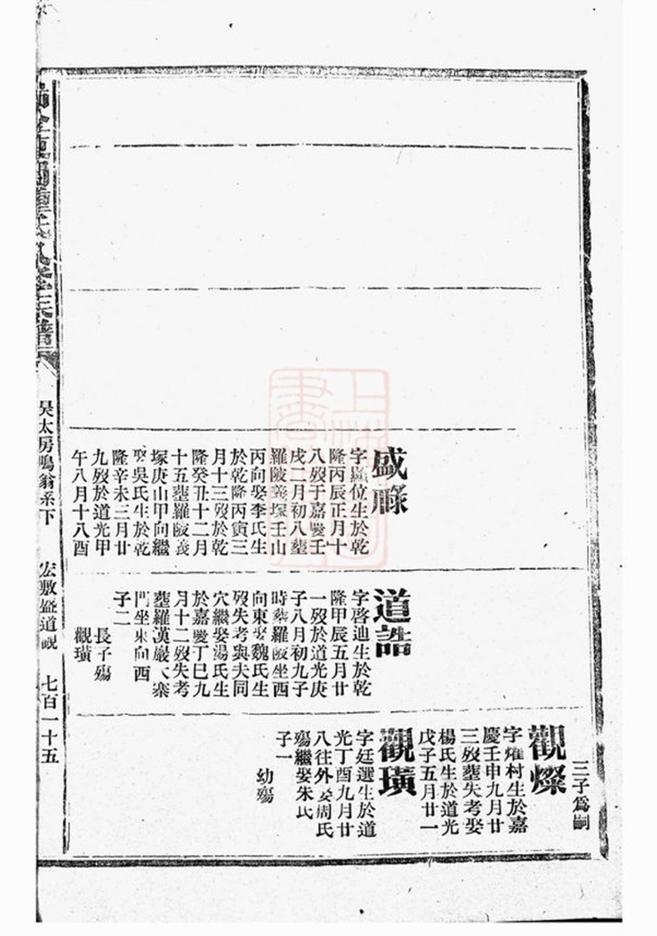 三子爲嗣
觀燦
字燿村生於嘉
慶壬申九月廿
三歿塟失考娶
楊氏生於道光
戊子五月廿一
觀璜
字廷選生於道
光丁酉九月廿
八往外娶周氏
殤繼娶朱氏
子一
幼殤
道誥
字啓迪生於乾
隆甲辰五月廿
一歿於道光庚
子八月初九子
時塟羅陂坐西
向東娶魏氏生
歿失考與夫同
穴繼娶湯氏生
於嘉慶丁巳九
月十二歿失考
塟羅漢嚴
門坐東向西
子二
長子殤
觀璜
盛
字顯位生於乾
隆丙辰正月十
八歿于嘉慶壬
戌二月初八塟
羅陵義塚壬山
丙向娶李氏生
於乾隆丙寅三
月十三歿於乾
隆癸丑十二月
十五塟羅陂義
塚庚山甲向繼
娶吳氏生於乾
隆辛未三月廿
九歿於道光甲
午八月十八酉
吴太房鳴翁系下
宏敷盛道觀
七百一十五